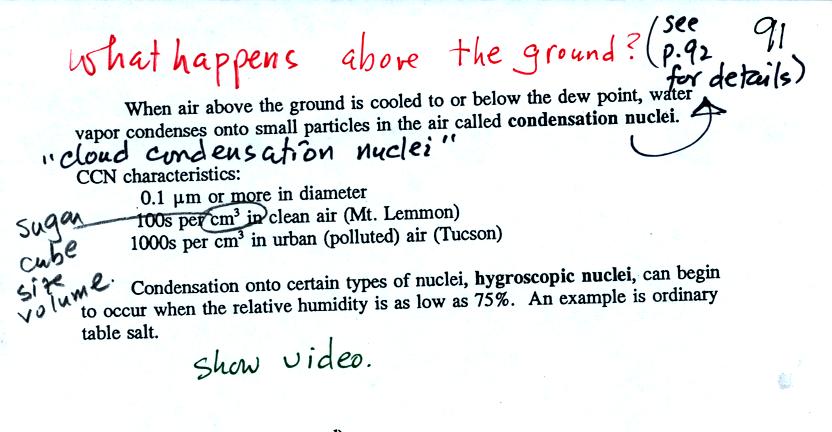 what happens above the ground? (see p.92 for details)
91
When air above the ground is cooled to or below the dew point, water
vapor condenses onto small particles in the air called condensation nuclei.
"cloud condensation nuclei"
CCN characteristics:
0.1 μm or more in diameter
100s per cm³ in clean air (Mt. Lemmon)
1000s per cm³ in urban (polluted) air (Tucson)
sugar
cube
size
volume.
Condensation onto certain types of nuclei, hygroscopic nuclei, can begin
to occur when the relative humidity is as low as 75%. An example is ordinary
table salt.
show video.